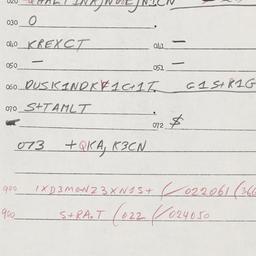 030 O .
040 KREXCT 041 —
050 — 051 —
060 DUSK1NDK 1C+1T. G1S+R1G
070 S+TAMLT .
072 $
073 +QKA, K3CN
900 1XD3MONZ3XN1S+ (/022061 (366
900 S+PA.T (022 (/024050